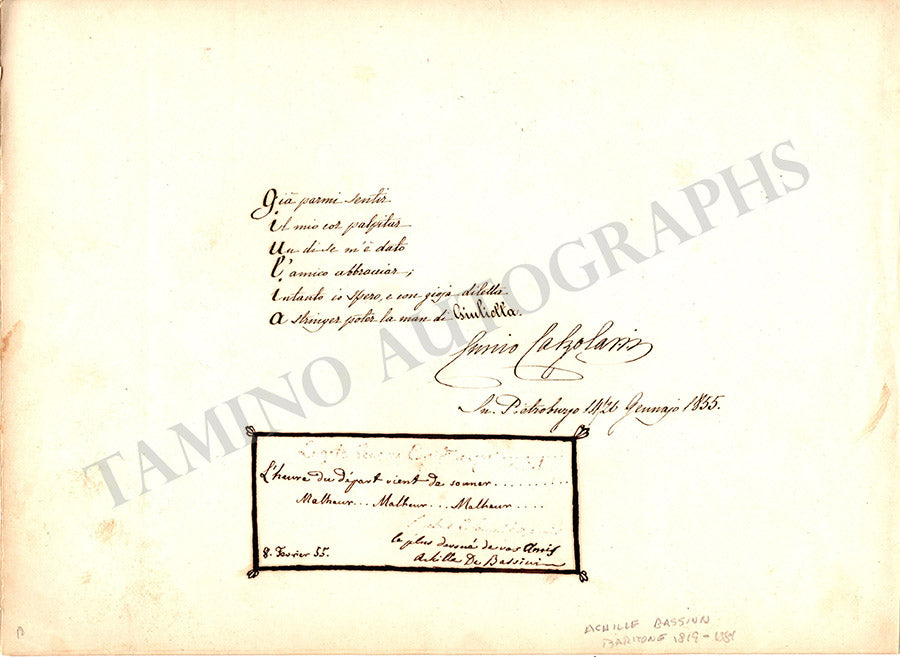 già parmi sentir
il mio cor palpitar
un dì se m'è dato
l'amico abbracciar;
intanto io spero, e con gioja diletta
a stringer poter la man di Giulietta.
Enzo Calzolari
Sn. Pietroburgo 14/26 Gennajo 1855.
L'heure du départ vient de sonner..........
Malheur... Malheur... Malheur....
le plus devoué de vos Amis
8. Fevrier 55.
Achille De Bassini
TAMINO AUTOGRAPHS
ACHILLE BASSINI
BARITONE 1819-1881
B